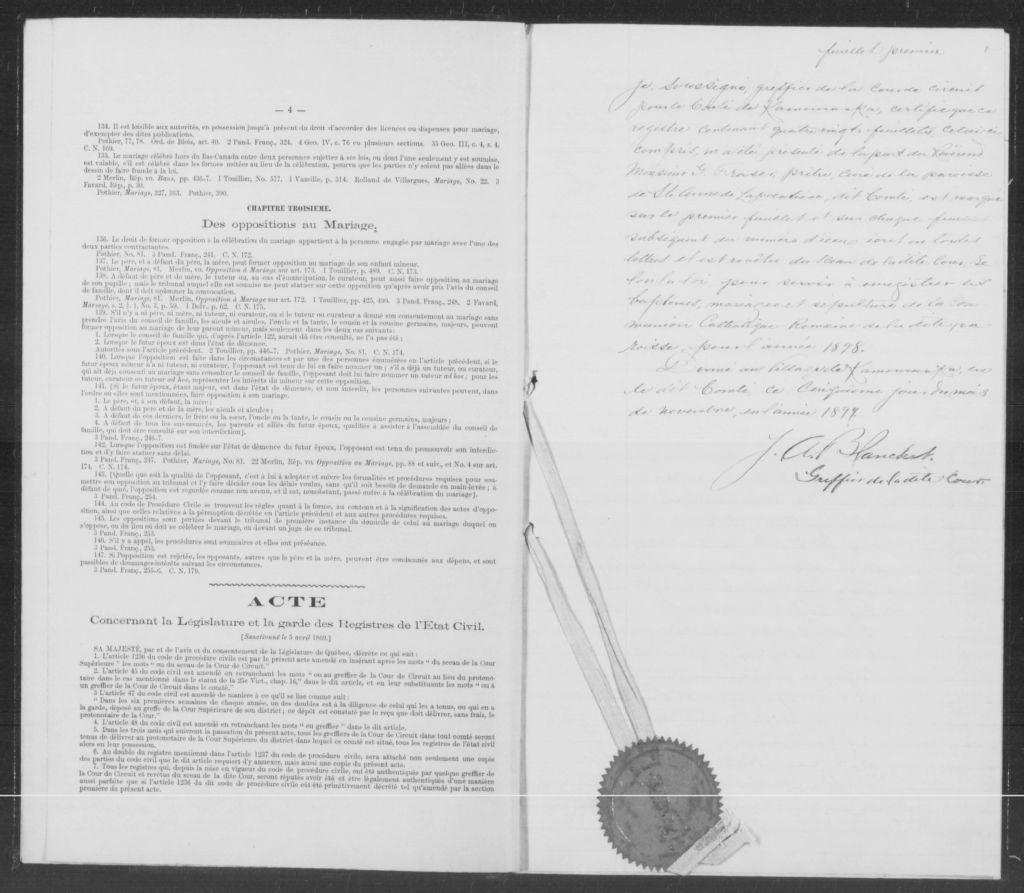 — 4 —
134. Il est loisible aux autorités, en possession jusqu'à présent du droit d'accorder des licences ou dispenses pour mariage,
d'exempter des dites publications.
Pothier, 77, 78. Ord. de Blois, art. 40. 2 Pand. Franç., 324. 4 Geo. IV, c. 76 en plusieurs sections. 35 Geo. III, c. 4, s. 4.
C. N. 169.
135. Le mariage célébré hors du Bas-Canada entre deux personnes sujettes à ses lois, ou dont l'une seulement y est soumise,
est valable, s'il est célébré dans les formes usitées au lieu de la célébration, pourvu que les parties n'y soient pas allées dans le
dessin de faire fraude à la loi.
2 Merlin, Rép. vo. Bans, pp. 435-7. 1 Touillier, No. 577. 1 Vazille, p. 314. Rolland de Villargues, Mariage, No. 22. 3
Favard, Rép., p. 30.
Pothier, Mariage, 327, 363. Pothier, 390.
CHAPITRE TROISIEME.
Des oppositions au Mariage.
136. Le droit de former opposition à la célébration du mariage appartient à la personne engagée par mariage avec l'une des
deux parties contractantes.
Pothier, No. 81. 3 Pand. Franç., 241. C. N. 172.
137. Le père, et à défaut du père, la mère, peut former opposition au mariage de son enfant mineur.
Pothier, Mariage, 81. Merlin, vo. Opposition à Mariage sur art. 173. 1 Touillier, p. 489. C. N. 173.
138. A défaut de père et de mère, le tuteur ou, au cas d'émancipation, le curateur, peut aussi faire opposition au mariage
de son pupille; mais le tribunal auquel elle est soumise ne peut statuer sur cette opposition qu'après avoir pris l'avis du conseil
de famille, dont il doit ordonner la convocation.
Pothier, Mariage, 81. Merlin, Opposition à Mariage sur art. 172. 1 Touillier, pp. 425, 490. 3 Pand. Franç., 248. 2 Favard,
Mariage, s. 2, § 1, No. 5, p. 59. 1 Delv., p. 62. C. N. 175.
139. S'il n'y a ni père, ni mère, ni tuteur, ni curateur, ou si le tuteur ou curateur a donné son consentement au mariage sans
prendre l'avis du conseil de famille, les aieuls et aieules, l'oncle et la tante, le cousin et la cousine germains, majeurs, peuvent
former opposition au mariage de leur parent mineur, mais seulement dans les deux cas suivants:
1. Lorsque le conseil de famille qui, d'après l'article 122, aurait dû être consulté, ne l'a pas été;
2. Lorsque le futur époux est dans l'état de démence.
Autorités sous l'article précédent. 2 Touillier, pp. 446-7. Pothier, Mariage, No. 81. C. N. 174.
140. Lorsque l'opposition est faite dans les circonstances et par une des personnes énumérées en l'article précédent, si le
futur époux mineur n'a ni tuteur, ni curateur, l'opposant est tenu de lui en faire nommer un; s'il a déjà un tuteur, ou curateur,
qui ait déjà consenti au mariage sans consulter le conseil de famille, l'opposant doit lui faire nommer un tuteur ad hoc; pour les
tuteur, curateur ou tuteur ad hoc, représenter les intérêts du mineur sur cette opposition.
141. [Si le futur époux, étant majeur, est dans l'état de démence, et non interdit, les personnes suivantes peuvent, dans
l'ordre où elles sont mentionnées, faire opposition à son mariage.
1. Le père, et, à son défaut, la mère;
2. A défaut du père et de la mère, les aïeuls et aïeules;
3. A défaut de ces derniers, le frère ou la sœur, l'oncle ou la tante, le cousin ou la cousine germains, majeurs;
4. A défaut de tous les sus-nommés, les parents et alliés du futur époux, qualifiés à assister à l'assemblée du conseil de
famille, qui doit être consulté sur son interdiction].
3 Pand. Franç., 246-7.
142. Lorsque l'opposition est fondée sur l'état de démence du futur époux, l'opposant est tenu de promouvoir son interdiction
et d'y faire statuer sans délai.
3 Pand. Franç., 247. Pothier, Mariage, No. 81. 22 Merlin, Rép. vo. Opposition au Mariage, pp. 88 et suiv., et No. 4 sur art.
174. C. N. 174.
143. [Quelle que soit la qualité de l'opposant, c'est à lui à adopter et suivre les formalités et procédures requises pour soumettre
son opposition au tribunal et l'y faire décider sous les délais voulus, sans qu'il soit besoin de demande en main-levée; à
défaut de quoi, l'opposition est regardée comme non avenu, et il est, nonobstant, passé outre à la célébration du mariage].
3 Pand. Franç., 254.
144. Au code de Procédure Civile se trouvent les règles quant à la forme, au contenu et à la signification des actes d'opposition,
ainsi que celles relatives à la péremption décrétée en l'article précédent et aux autres procédures requises.
145. Les oppositions sont portées devant le tribunal de première instance du domicile de celui au mariage duquel on
s'oppose, ou du lieu où doit se célébrer le mariage, ou devant un juge de ce tribunal.
3 Pand. Franç., 253.
146. S'il y a appel, les procédures sont sommaires et elles ont préséance.
3 Pand. Franç., 253.
147. Si l'opposition est rejetée, les opposants, autres que le père et la mère, peuvent être condamnés aux dépens, et sont
passibles de dommages-intérêts suivant les circonstances.
3 Pand. Franç., 255-6. C. N. 179.
ACTE
Concernant la Législature et la garde des Registres de l'Etat Civil.
[Sanctionné le 5 avril 1869.]
SA MAJESTÉ, par et de l'avis et du consentement de la Législature de Québec, décrète ce qui suit:
1. L'article 1236 du code de procédure civile est par le présent acte amendé en insérant après les mots " du sceau de la Cour
Supérieure " les mots " ou du sceau de la Cour de Circuit."
2. L'article 45 du code civil est amendé en retranchant les mots " ou au greffier de la Cour de Circuit au lieu du protonotaire
dans le cas mentionné dans le statut de la 25e Vict., chap. 16," dans le dit article, et en leur substituant les mots " ou à
un greffier de la Cour de Circuit dans le comté."
3 L'article 47 du code civil est amendé de manière à ce qu'il se lise comme suit:
" Dans les six premières semaines de chaque année, un des doubles est à la diligence de celui qui les a tenus, ou qui en a
la garde, déposé au greffe de la Cour Supérieure de son district; ce dépôt est constaté par le reçu que doit délivrer, sans frais, le
protonotaire de la Cour."
4. L'article 48 du code civil est amendé en retranchant les mots " ou greffier " dans le dit article.
5. Dans les trois mois qui suivront la passation du présent acte, tous les greffiers de la Cour de Circuit dans tout comté seront
tenus de délivrer au protonotaire de la Cour Supérieure du district dans lequel ce comté est situé, tous les registres de l'état civil
alors en leur possession.
6. Au double du registre mentionné dans l'article 1237 du code de procédure civile, sera attaché non seulement une copie
des parties du code civil que le dit article requiert d'y annexer, mais aussi une copie du présent acte.
7. Tous les registres qui, depuis la mise en vigueur du code de procédure civile, ont été authentiqués par quelque greffier de
la Cour de Circuit et revêtus du sceau de la dite Cour, seront réputés avoir été et être légalement authentiqués d'une manière
aussi parfaite que si l'article 1236 du dit code de procédure civile eut été primitivement décrété tel qu'amendé par la section
première du présent acte.
feuillet premier 1
Je, Soussigné, greffier de la Cour de circuit
pour le Comté de Kamouraska, certifie que ce
registre contenant quatre vingts feuillets, celui-ci
compris, m'a été présenté de la part du Révérend
Monsieur Fraser, prêtre, Curé de la paroisse
de Ste Anne de Lapocatière, dit Comté, est marqué
sur le premier feuillet et sur chaque feuillet
subséquent du numéro d'icelui écrit en toutes
lettres et est revêtu du Sceau de la dite Cour. Se
pour servir à enregistrer les
baptêmes, mariages et sépultures de la Com
munion Catholique Romaine de la dite pa
roisse, pour l'année 1898.
Donné au Village de Kamouraska, en
le dit Comté, ce Cinquième jour du mois
de novembre, en l'année 1897.
Blanchet.
Greffier de la dite Cour